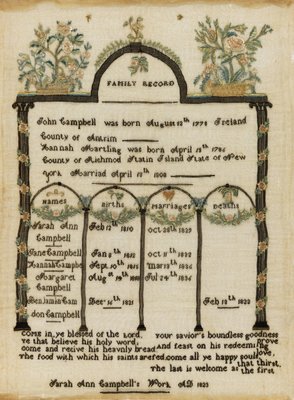 FAMILY RECORD
John Campbell was born August 12th 1778 Ireland
County of Antrim
Hannah Hartling was born April 15th 1786
County of Richmod Statin Island State of New
york Married April 15th 1808
names Births Marriages Deaths
Sarah Ann Feb 12th 1810 Oct 28th 1829
Campbell
Jane Campbell Jan 8th 1812 Oct 11th 1832
Hannah Campbe Sept 10th 1815 Mar 13th 1834
Margaret Aug 19th July 24th 1834
Campbell
Benjamin Cam Dec 14th 1821 Feb 10th 1822
don Campbell
Come in, ye blessed of the Lord, your savior's boundless goodness
prove
ye that believe his holy word, And feast on his redeeming
love,
come and recive his heavenly bread, come all ye happy souls that thirst,
The food with which his saints are fed. The last is welcome as the first.
Sarah Ann Campbell's Work AD 1823